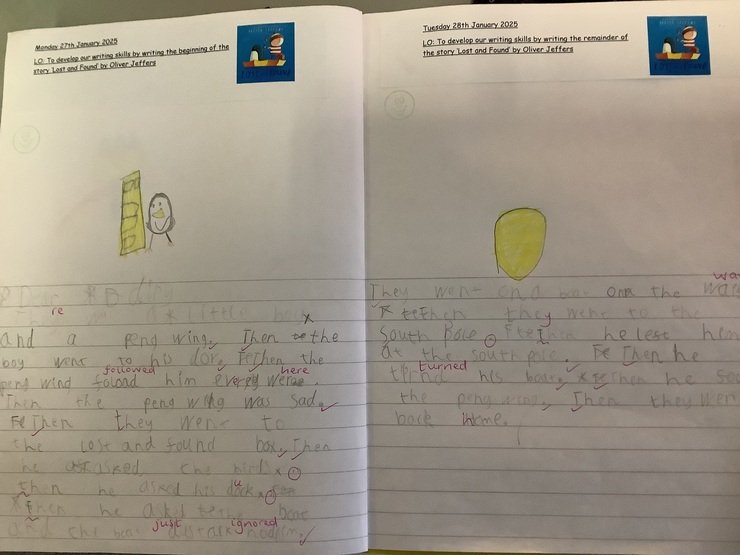 Monday 27th January 2025
LO: To develop our writing skills by writing the beginning of the
story 'Lost and Found' by Oliver Jeffers
Dear
re a little boy
and a peng wing. Then the
boy went to his dor. Then the
followed here
peng wind foload him every werae.
Then the peng wing was sad.
Then they went to
the lost and found box. Then
he asked the bird
u
then he asked his dack
Then he asked boat
just ignored
and the boat
Tuesday 28th January 2025
LO: To develop our writing skills by writing the remainder of
the story 'Lost and Found' by Oliver Jeffers
wa
They went on a boat on the
then they went to the
South pole. Then he left him
at the south pole. Then he
turned
his boat. Then he
the peng wing. Then they wen
back home.